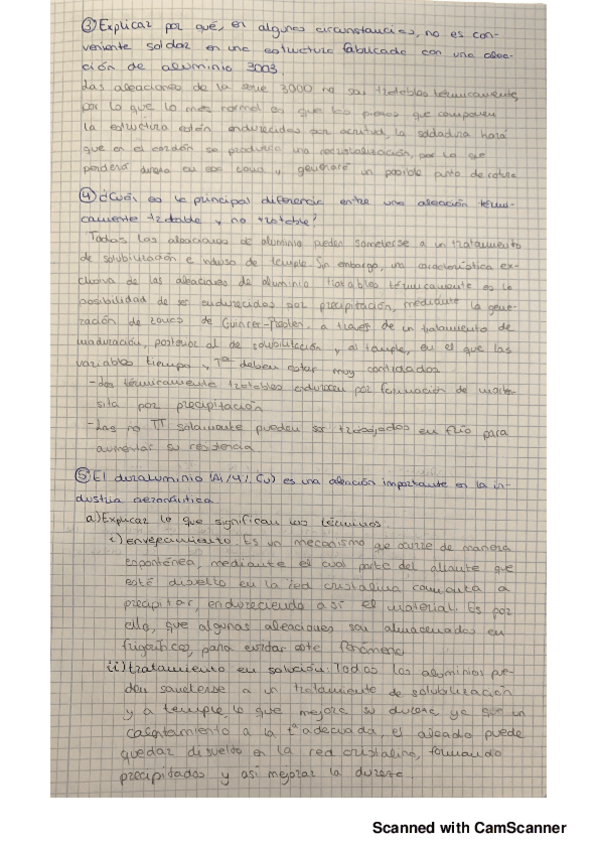 ③ Explicar por qué, en algunas circunstancias, no es con-
veniente soldar en una estructura fabricada con una alea-
ción de aluminio 3003.
Las aleaciones de la serie 3000 no son tratables térmicamente,
por lo que lo más normal es que las piezas que componen
la estructura estén endurecidas por acritud, la soldadura hará
que en el cordón se produzca una recristalización, por lo que
perderá dureza en esa zona y generará un posible punto de rotura
④ ¿Cuál es la principal diferencia entre una aleación térmi-
camente tratable y no tratable?
Todas las aleaciones de aluminio pueden someterse a un tratamiento
de solubilización e incluso de temple. Sin embargo, una característica ex-
clusiva de las aleaciones de aluminio tratables térmicamente es la
posibilidad de ser endurecidas por precipitación, mediante la gene-
ración de zonas de Guinier-Preston, a través de un tratamiento de
maduración, posterior al de solubilización y al temple, en el que las
variables tiempo y Tª deben estar muy controladas
- Las térmicamente tratables endurecen por formación de marte-
sita por precipitación
- Las no TT solamente pueden ser trabajadas en frío para
aumentar su resistencia
⑤ El duraluminio (Al/4% Cu) es una aleación importante en la in-
dustria aeronáutica
a) Explicar lo que significan los términos
i) envejecimiento: Es un mecanismo que ocurre de manera
espontánea, mediante el cual parte del aleante que
está disuelto en la red cristalina comienza a
precipitar, endureciendo así el material. Es por
ello, que algunas aleaciones son almacenadas en
frigoríficos, para evitar este fenómeno
ii) tratamiento en solución: Todos los aluminios pue-
den someterse a un tratamiento de solubilización
y a temple, lo que mejora su dureza, ya que un
calentamiento a la Tª adecuada, el aleado puede
quedar disuelto en la red cristalina, formando
precipitados y así mejorar la dureza
Scanned with CamScanner